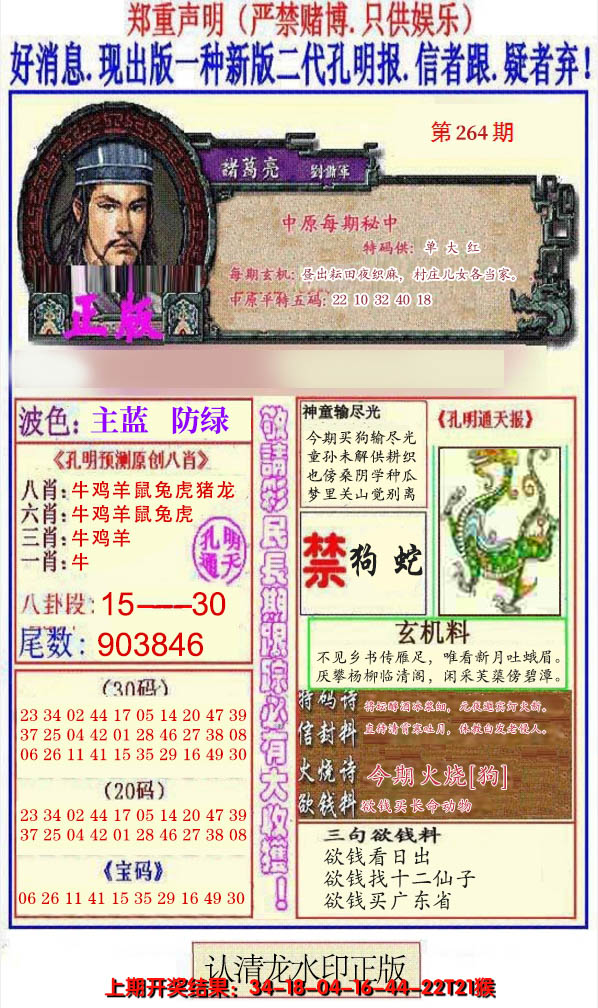 郑重声明（严禁赌博.只供娱乐）
好消息.现出版一种新版二代孔明报.信者跟.疑者弃!
第264期
諸葛亮
中原每期秘中
特码供：单大红
每期玄机：昼出耘田夜织麻，村庄儿女各当家。
中原平特五码：22 10 32 40 18
正版
波色：主蓝 防绿
《孔明预测原创八肖》
八肖：牛鸡羊鼠兔虎猪龙
六肖：牛鸡羊鼠兔虎
三肖：牛鸡羊
一肖：牛
孔明
通天
八卦段：15——30
尾数：903846
（30码）
23 34 02 44 17 05 14 20 47 39
37 25 04 42 01 28 46 27 38 08
06 26 11 41 15 35 29 16 49 30
（20码）
23 34 02 44 17 05 14 20 47 39
37 25 04 42 01 28 46 27 38 08
《宝码》
06 26 11 41 15 35 29 16 49 30
敬請彩民長期跟踪必有大收獲！
神童输尽光
今期买狗输尽光
童孙未解供耕织
也傍桑阴学种瓜
梦里关山觉别离
《孔明通天报》
禁 狗 蛇
玄机料
不见乡书传雁足，唯看新月吐蛾眉。
厌攀杨柳临清阁，闲采芙蕖傍碧潭。
特码诗
信封料
火烧诗 今期火烧[狗]
欲钱料 欲钱买长命动物
三句欲钱料
欲钱看日出
欲钱找十二仙子
欲钱买广东省
认清龙水印正版
上期开奖结果：34-18-04-16-44-22T21猴